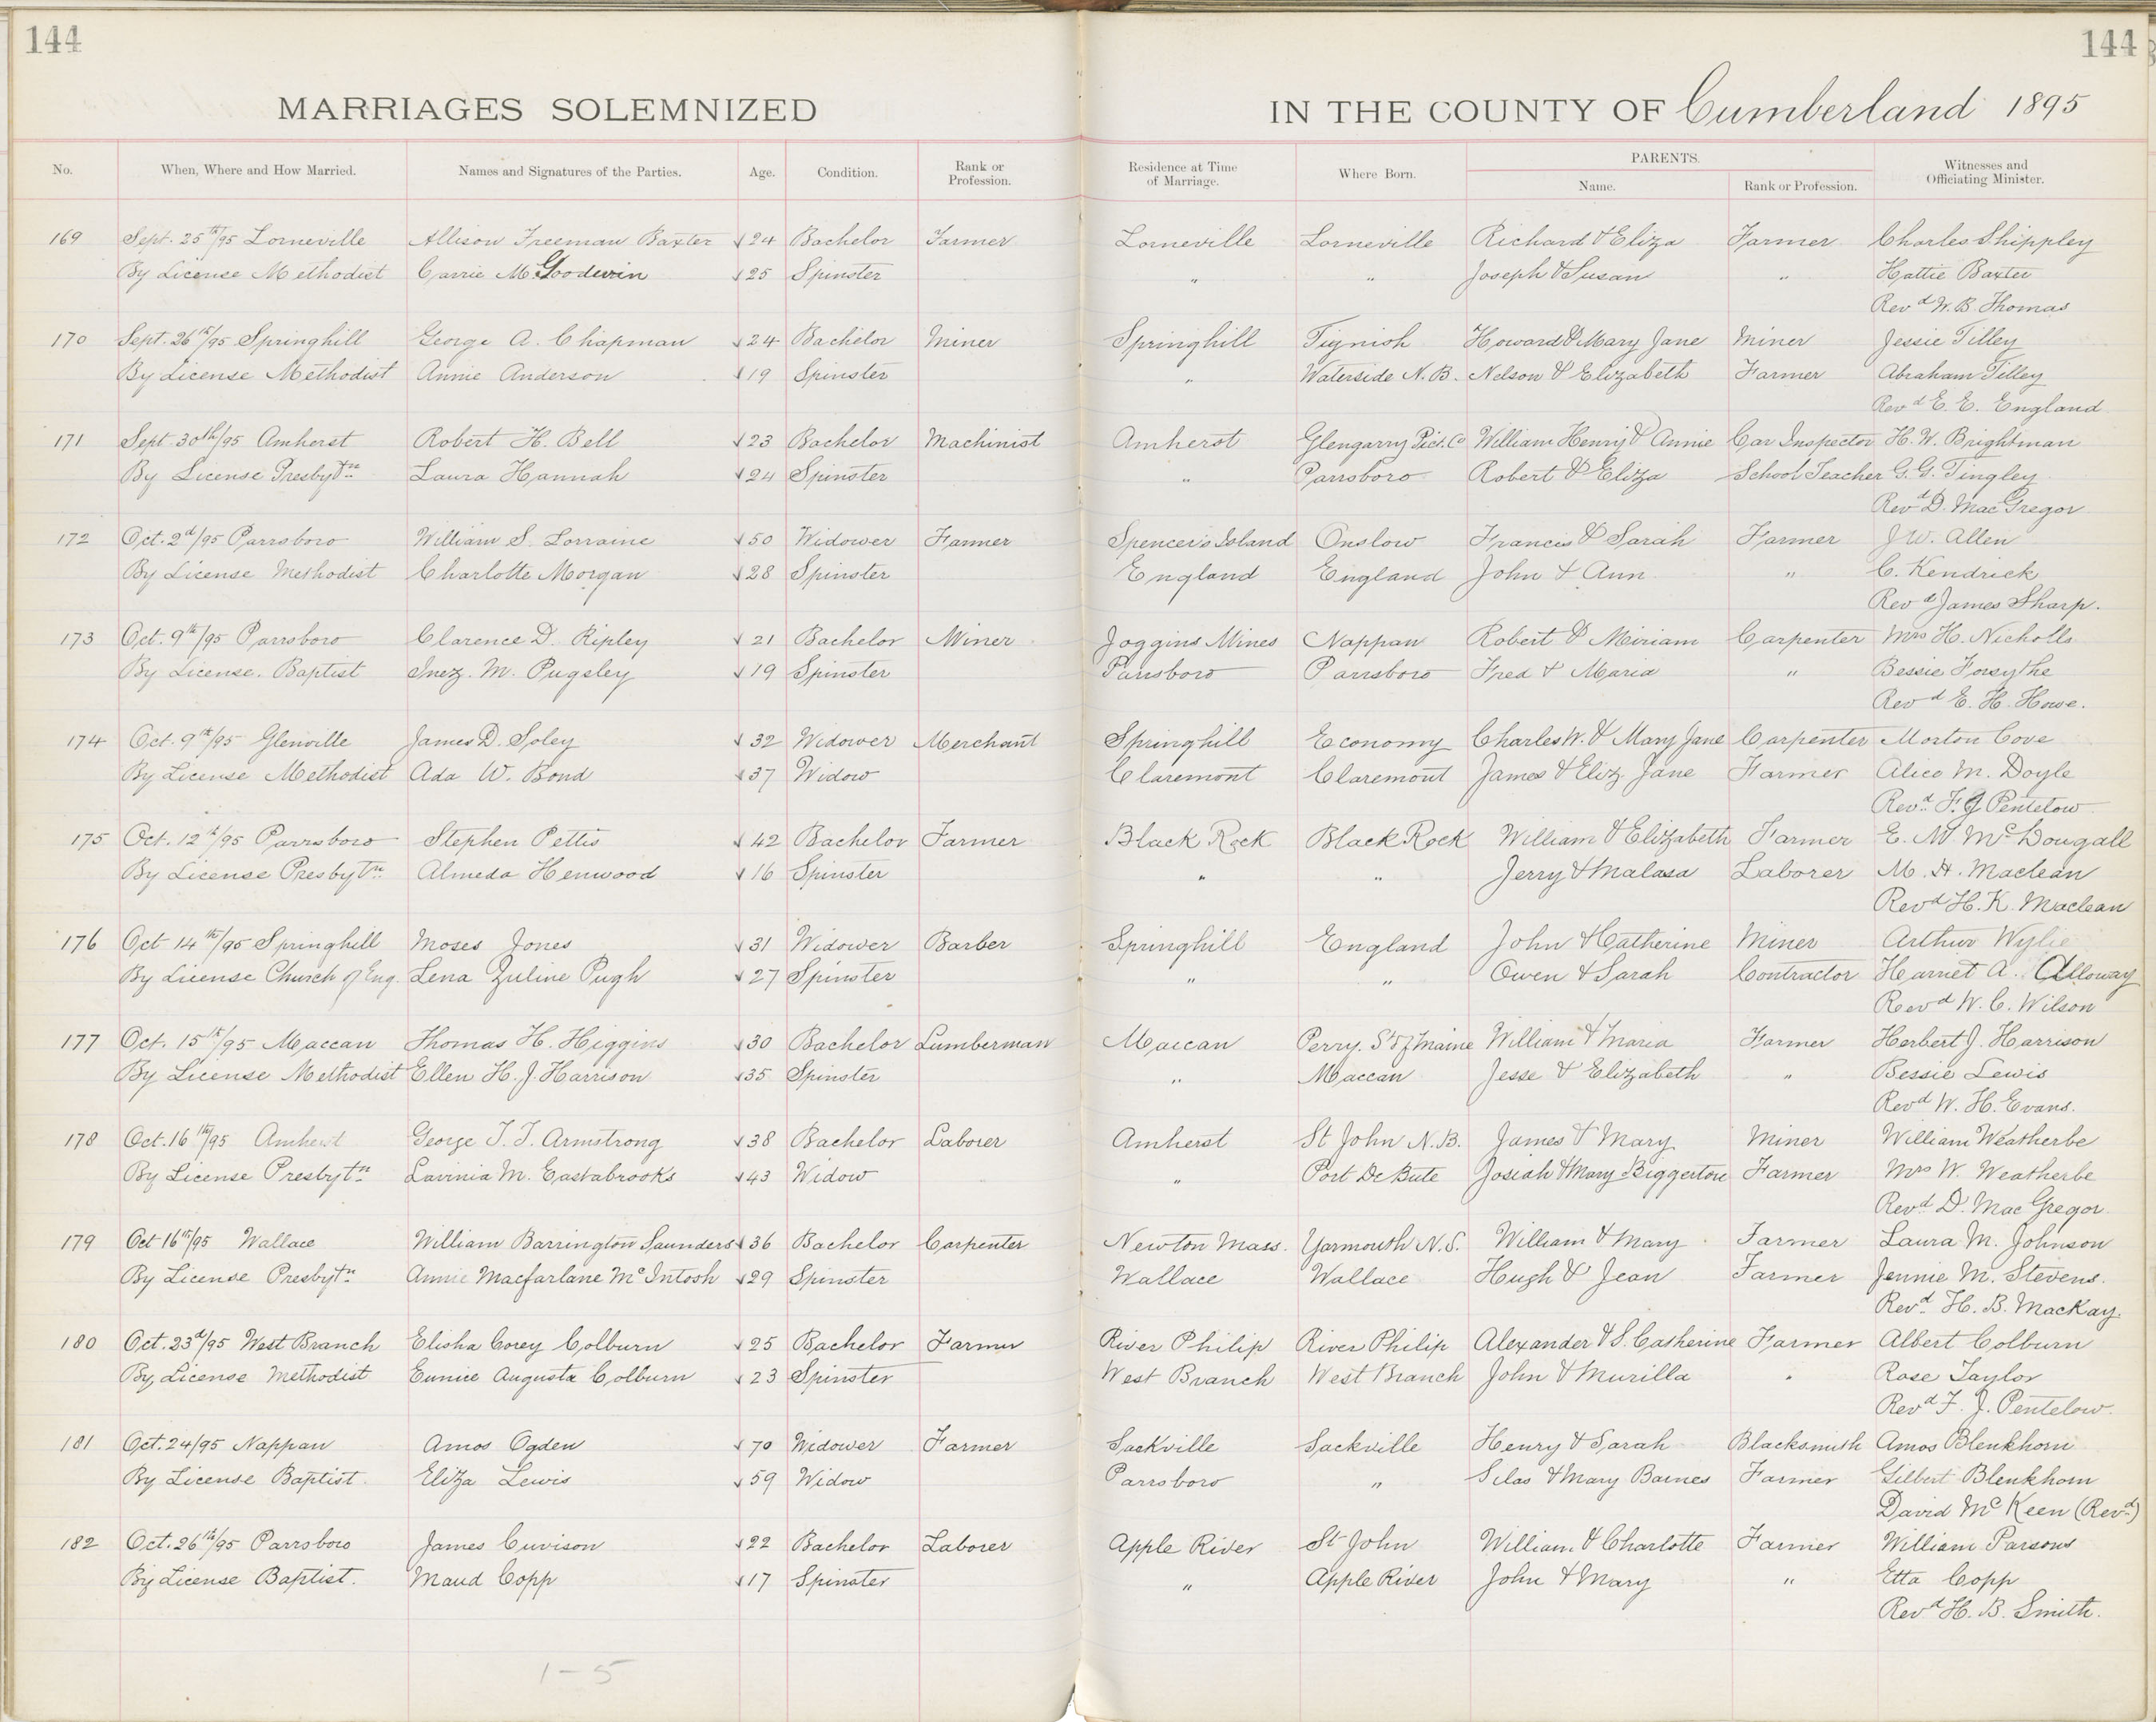 144
144
MARRIAGES SOLEMNIZED IN THE COUNTY OF Cumberland 1895
No. When, Where and How Married. Names and Signatures of the Parties. Age. Condition. Rank or Profession. Residence at Time of Marriage. Where Born. PARENTS. Name. Rank or Profession. Witnesses and Officiating Minister.
169 Sept. 25th/95 Lorneville Allison Freeman Baxter 24 Bachelor Farmer Lorneville Lorneville Richard & Eliza Farmer Charles Shippley
By License Methodist Carrie M. Goodwin 25 Spinster " " Joseph & Susan " Hattie Baxter
Revd W. B. Thomas
170 Sept. 26th/95 Springhill George A. Chapman 24 Bachelor Miner Springhill Tignish Howard & Mary Jane Miner Jessie Tilley
By License Methodist Annie Anderson 19 Spinster " Waterside N.B. Nelson & Elizabeth Farmer Abraham Tilley
Revd E. E. England
171 Sept. 30th/95 Amherst Robert H. Bell 23 Bachelor Machinist Amherst Glengarry Pict. Co William Henry & Annie Car Inspector H. W. Brightman
By License Presbytrn Laura Hannah 24 Spinster " Parrsboro Robert & Eliza School Teacher G. G. Tingley
Revd D. MacGregor
172 Oct. 2d/95 Parrsboro William S. Lorraine 50 Widower Farmer Spencer's Island Onslow Francis & Sarah Farmer J. W. Allen
By License Methodist Charlotte Morgan 28 Spinster England England John & Ann " C. Kendrick
Revd James Sharp.
173 Oct. 9th/95 Parrsboro Clarence D. Ripley 21 Bachelor Miner Joggins Mines Nappan Robert & Miriam Carpenter Mrs H. Nicholls
By License. Baptist Inez. M. Pugsley 19 Spinster Parrsboro Parrsboro Fred & Maria " Bessie Forsythe
Revd E. H. Howe.
174 Oct. 9th/95 Glenville James D. Soley 32 Widower Merchant Springhill Economy Charles W. & Mary Jane Carpenter Morton Cove
By License Methodist Ada W. Bond 37 Widow Claremont Claremont James & Eliz. Jane Farmer Alice M. Doyle
Revd. F. J Pentelow
175 Oct. 12th/95 Parrsboro Stephen Pettis 42 Bachelor Farmer Black Rock Black Rock William & Elizabeth Farmer E. M. McDougall
By License Presbytrn Almeda Henwood 16 Spinster " " Jerry & Malasa Laborer M. H. Maclean
Revd H. K. Maclean
176 Oct 14th/95 Springhill Moses Jones 31 Widower Barber Springhill England John & Catherine Miner Arthur Wylie
By License Church of Eng. Lena Zuline Pugh 27 Spinster " " Owen & Sarah Contractor Harriet A. Alloway
Revd W. C. Wilson
177 Oct. 15th/95 Maccan Thomas H. Higgins 30 Bachelor Lumberman Maccan Perry. St of Maine William & Maria Farmer Herbert J. Harrison
By License Methodist Ellen H. J. Harrison 35 Spinster " Maccan Jesse & Elizabeth " Bessie Lewis
Revd W. H. Evans.
178 Oct. 16th/95 Amherst George T. T. Armstrong 38 Bachelor Laborer Amherst St John N.B. James & Mary Miner William Weatherbe
By License Presbytrn Lavinia M. Eastabrooks 43 Widow " Port De Bute Josiah & Mary Biggertore Farmer Mrs W. Weatherbe
Revd. D. MacGregor
179 Oct 16th/95 Wallace William Barrington Saunders 36 Bachelor Carpenter Newton Mass. Yarmouth N.S. William & Mary Farmer Laura M. Johnson
By License Presbytrn Annie Macfarlane McIntosh 29 Spinster Wallace Wallace Hugh & Jean Farmer Jennie M. Stevens.
Revd. H. B. MacKay.
180 Oct. 23d/95 West Branch Elisha Corey Colburn 25 Bachelor Farmer River Philip River Philip Alexander & S. Catherine Farmer Albert Colburn
By License Methodist Eunice Augusta Colburn 23 Spinster West Branch West Branch John & Murilla " Rose Taylor
Revd F. J. Pentelow.
181 Oct. 24/95 Nappan Amos Ogden 70 Widower Farmer Sackville Sackville Henry & Sarah Blacksmith Amos Blenkhorn
By License Baptist Eliza Lewis 59 Widow Parrsboro " Silas & Mary Barnes Farmer Gilbert Blenkhorn
David McKeen (Revd)
182 Oct. 26th/95 Parrsboro James Cuvison 22 Bachelor Laborer Apple River St John William & Charlotte Farmer William Parsons
By License Baptist. Maud Copp 17 Spinster " Apple River John & Mary " Etta Copp
Revd H. B. Smith.
1-5